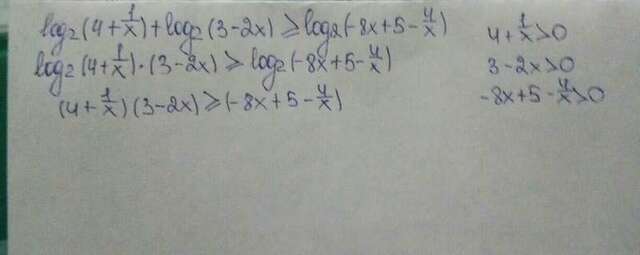 log₂(4+1/x)+log₂(3-2x)≥log₂(-8x+5-4/x)
log₂(4+1/x)·(3-2x)≥log₂(-8x+5-4/x)
(4+1/x)(3-2x)≥(-8x+5-4/x)
4+1/x>0
3-2x>0
-8x+5-4/x>0